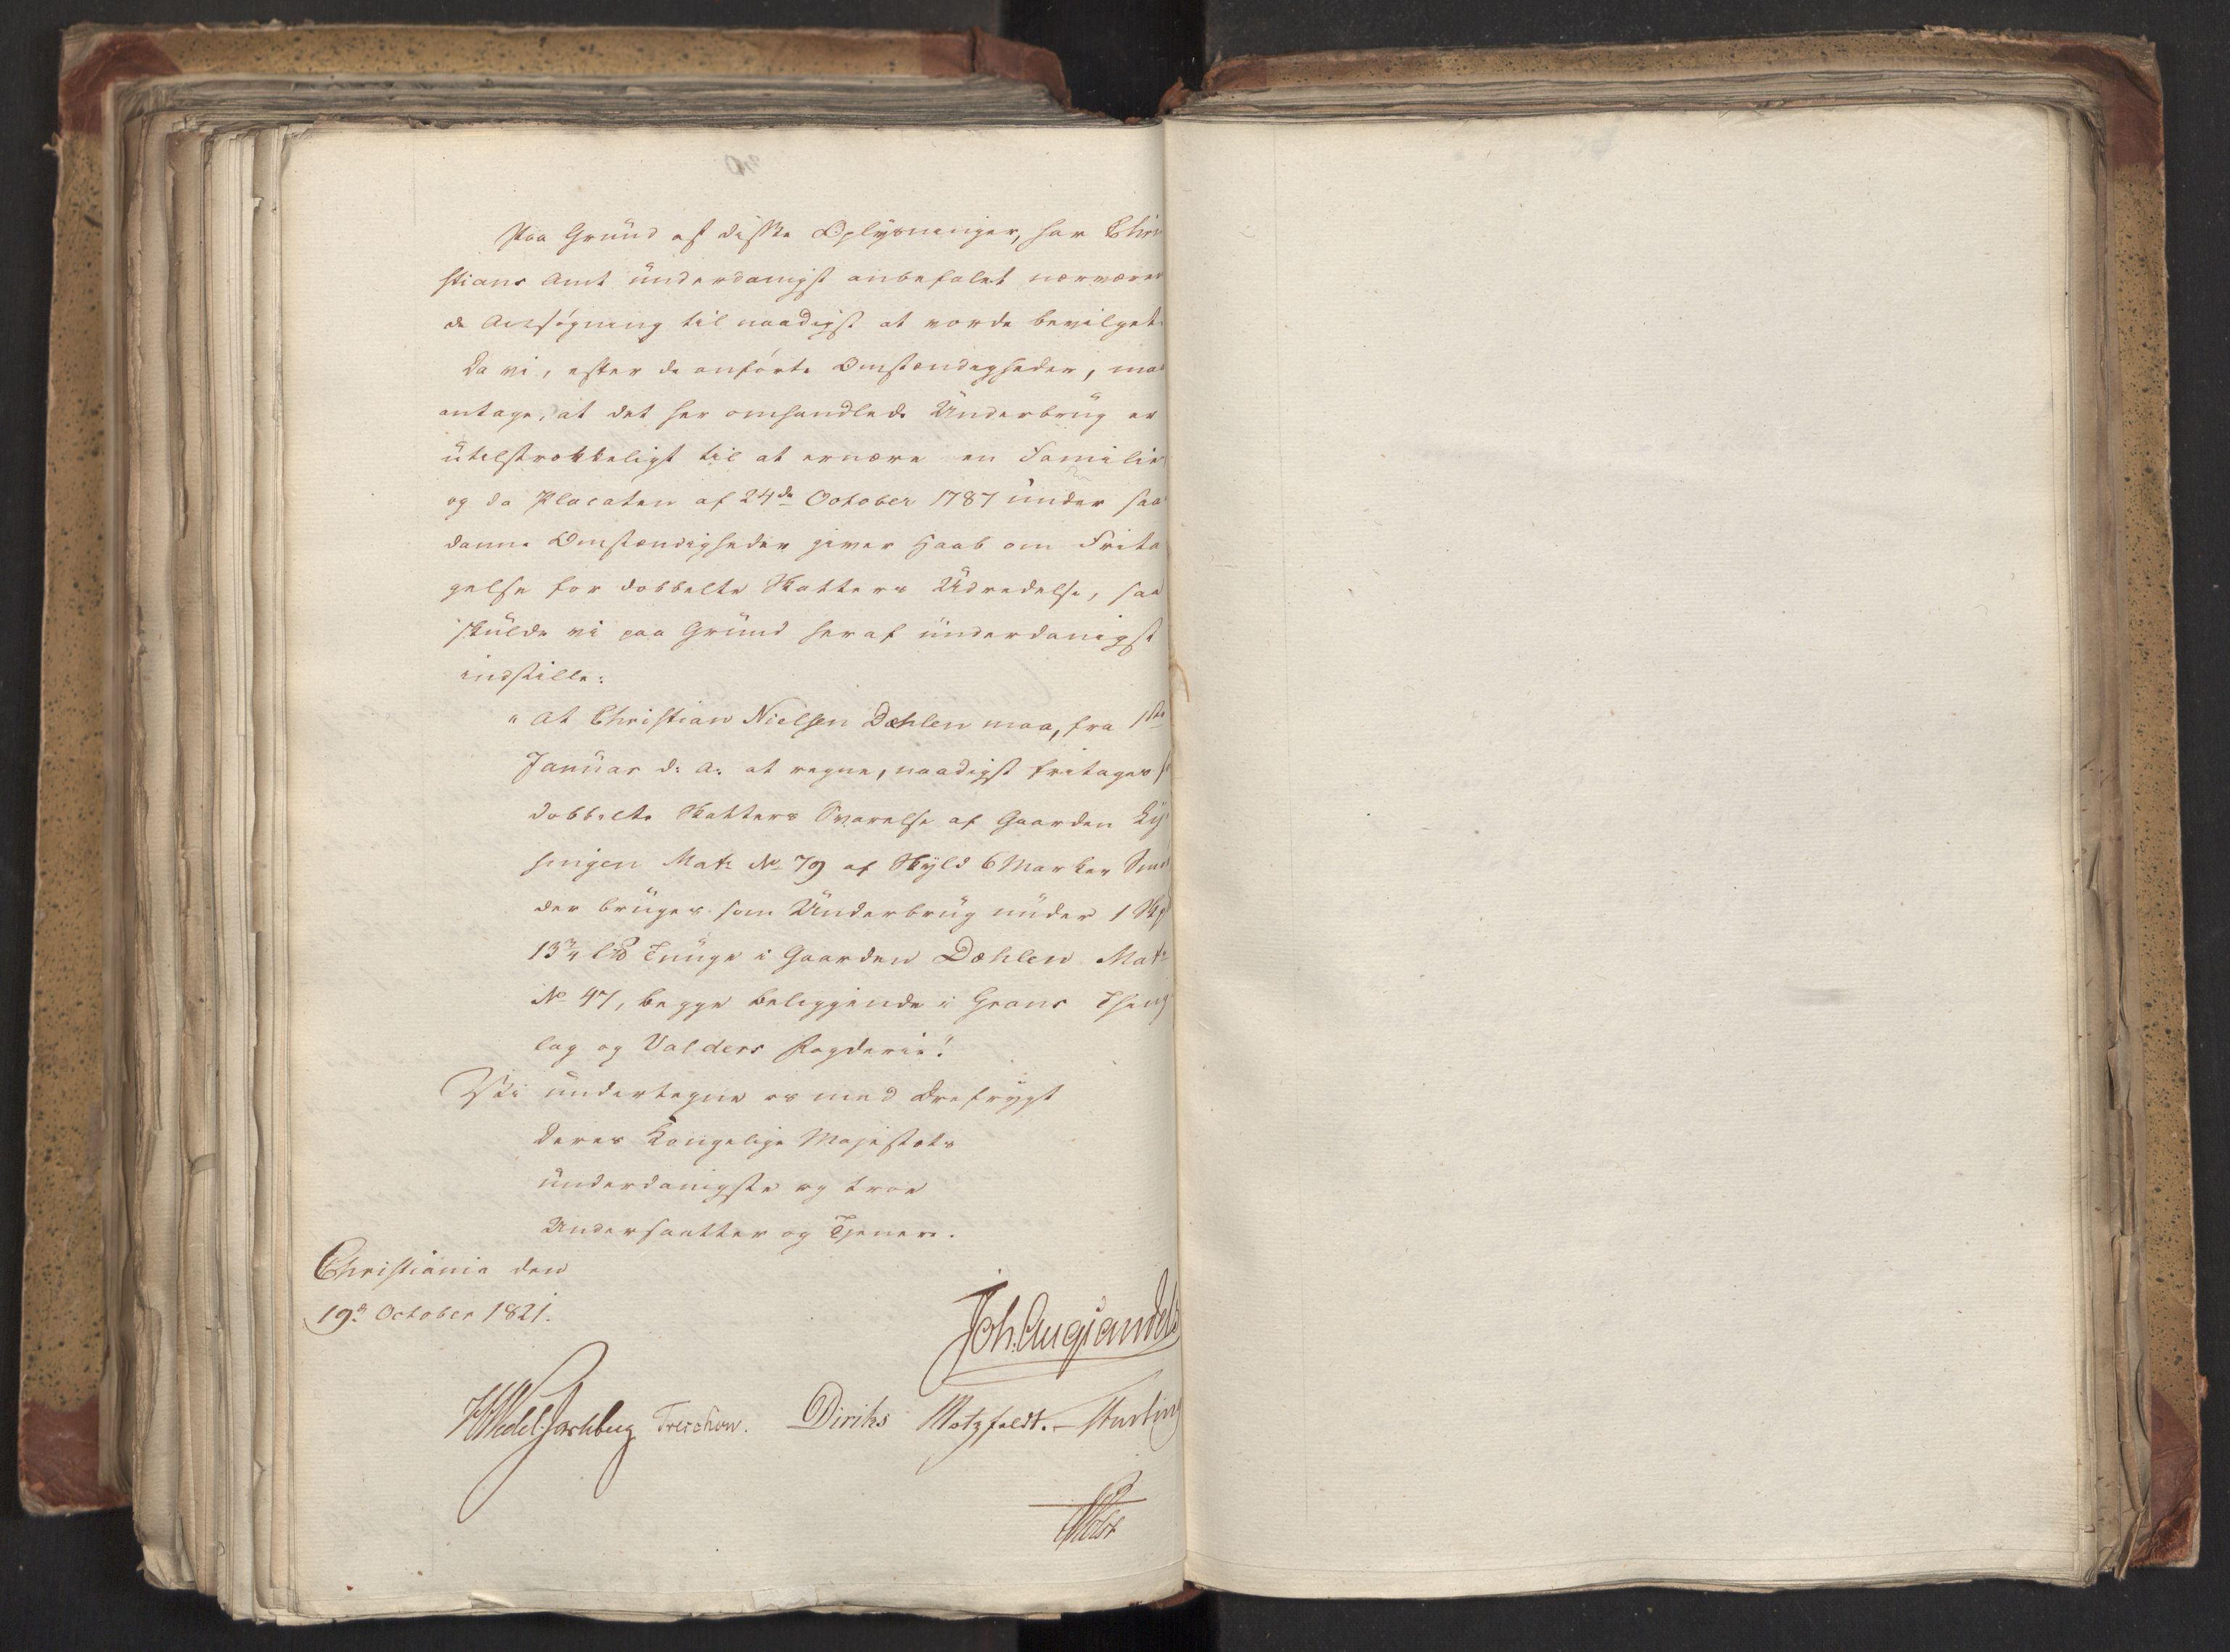 Paa Grund af disse Oplysninger, har Chri
stians Amt underdanigst anbefalet nærværen
de Ansøgning til naadigst at vorde bevilget.
Da vi, efter de anførte Omstændigheder, maa
antage, at det her omhandlede Underbrug er
utilstrækkeligt til at ernære en Familie
og da Placaten af 24de October 1787 under saa
danne Omstændigheder giver Haab om Frita
gelse for dobbelte Skatters Udredelse, saa
skulde vi paa Grund heraf underdanigst
indstille:
"At Christian Nielsen Dæhlen maa, fra 1ste
Januar d: A: at regne, naadigst fritages f
dobbelte Skatters Svarelse af Gaarden Ly
singen Matr No 79 af Skyld 6 Marker Smø
der bruges som Underbrug under 1 Skp
13 3/4 Lpd Tunge i Gaarden Dæhlen Matr
No 47, begge beliggende i Grans Thing
lag og Valders Fogderie".
Vi undertegne os med Ærefrygt
Deres Kongelige Majestæts
underdanigste og troe
Undersaatter og Tjenere.
Christiania den
19d October 1821.
Joh. Aug Sandels
HWedel Jarlsberg Treschow. Diriks Motzfeldt. Sturling
Holst